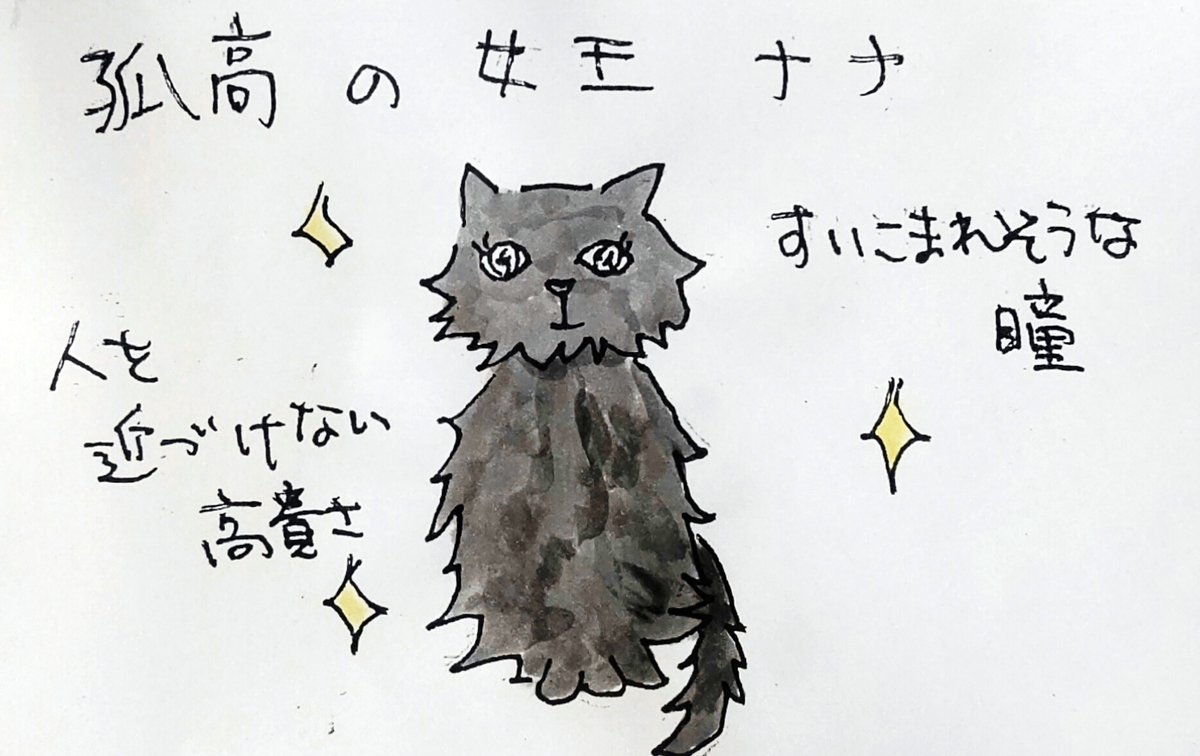 孤高の女王 ナナ
すいこまれそうな
瞳
人を
近づけない
高貴さ